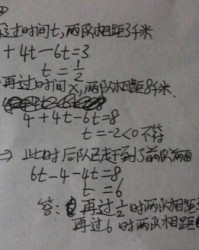 过时间t,两队相距3千米
+4t-6t=3
t=1/2
再过时间x,两队相距8千米.
4+4t-6t=8
t=-2<0不符
⇒ 此时后队已走到了前队前面
6t-4-4t=8,
t=6
答:再过1/2时两队相距3
再过6时两队相距8